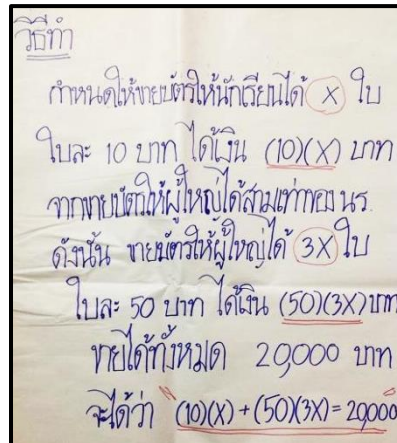 วิธีทำ
กำหนดให้ขายบัตรให้นักเรียนได้ x ใบ
ใบละ 10 บาท ได้เงิน (10)(x) บาท
จากขายบัตรให้ผู้ใหญ่ได้สามเท่าของ นร.
ดังนั้น ขายบัตรให้ผู้ใหญ่ได้ 3x ใบ
ใบละ 50 บาท ได้เงิน (50)(3x) บาท
ขายได้ทั้งหมด 20,000 บาท
จะได้ว่า (10)(x) + (50)(3x) = 20,000